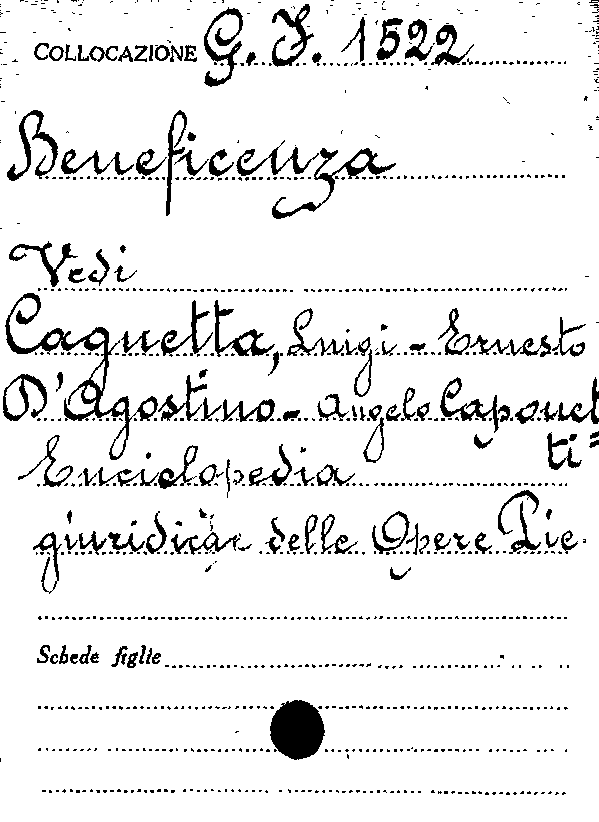 COLLOCAZIONE G. I. 1522
Beneficenza
Vedi
Cagnetta, Luigi - Ernesto
D'Agostino - Angelo Caponet
ti=
Enciclopedia
giuridica delle Opere Pie.
Schede figlie